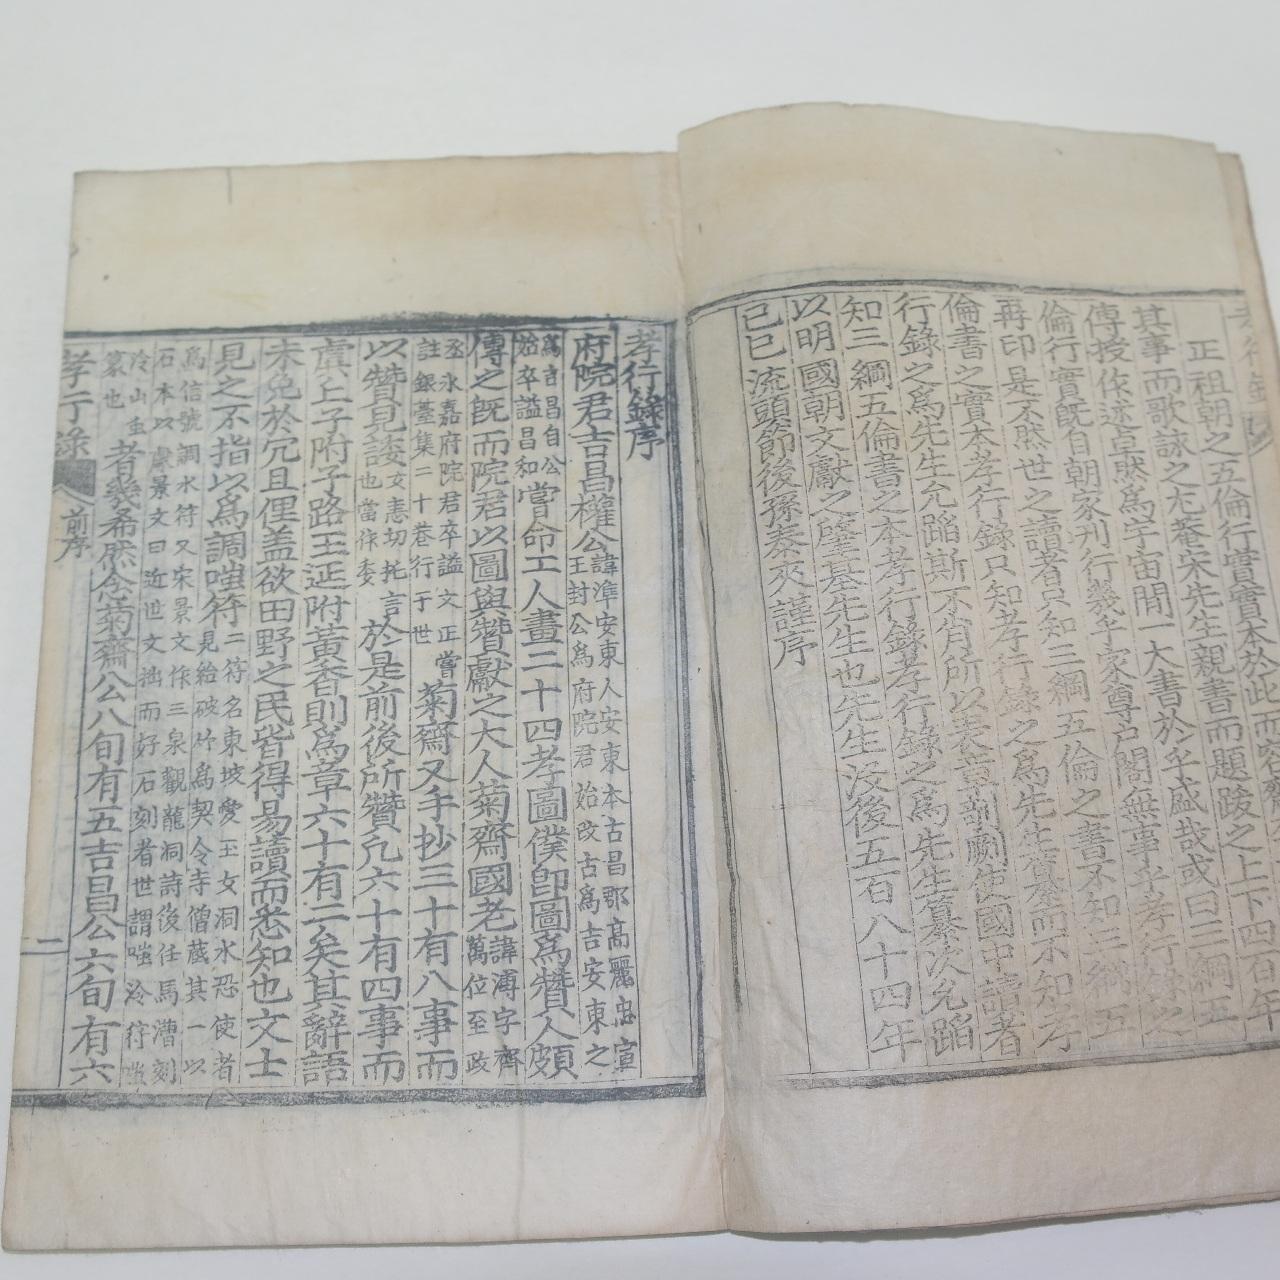 正祖朝之五倫行實實本於此而
其事而歌詠之尤菴宋先生親書而題跋之上下四百年
傳授作述卓然爲宇宙間一大書於乎盛哉或曰三綱五
倫行實旣自朝家刊行幾乎家尊戶閣無事乎孝行錄之
再印是不然世之讀者只知三綱五倫之書不知三綱五
倫書之實本孝行錄只知孝行錄之爲先生實蹟而不知孝
行錄之爲先生允蹈斯不肖所以表章剞劂使國中讀者
知三綱五倫書之本孝行錄孝行錄之爲先生纂次允蹈
以明國朝文獻之肇基先生也先生沒後五百八十四年
己巳流頭節後孫泰夾謹序
孝行錄序
府院君吉昌權公諱準安東人安東本古昌郡高麗忠宣
王封公爲府院君始改古爲吉安東之
爲吉昌自公
始卒謚昌和嘗命工人畫二十四孝圖僕卽圖爲贊人頗
傳之旣而院君以圖與贊獻之大人菊齋國老諱溥字齊
萬位至政
丞永嘉府院君卒謚文正嘗
註銀臺集二十卷行于世菊齋又手抄三十有八事而
以贊見諉文恚切托言
也當作委於是前後所贊凡六十有四事而
虞丘子附子路王延附黃香則爲章六十有二矣其辭語
未免於冗且俚盖欲田野之民皆得易讀而悉知也文士
見之不指以爲調嗤符二符名東坡愛玉女洞水恐使者
見紿破竹爲契令寺僧藏其一以
爲信號調水符又宋景文作三泉觀龍洞詩後任馬漕刻
石本以獻景文曰近世文拙而好石刻者世謂嗤
泠符
篆也者幾希然念菊齋公八旬有五吉昌公六旬有六
孝行錄 前序 二